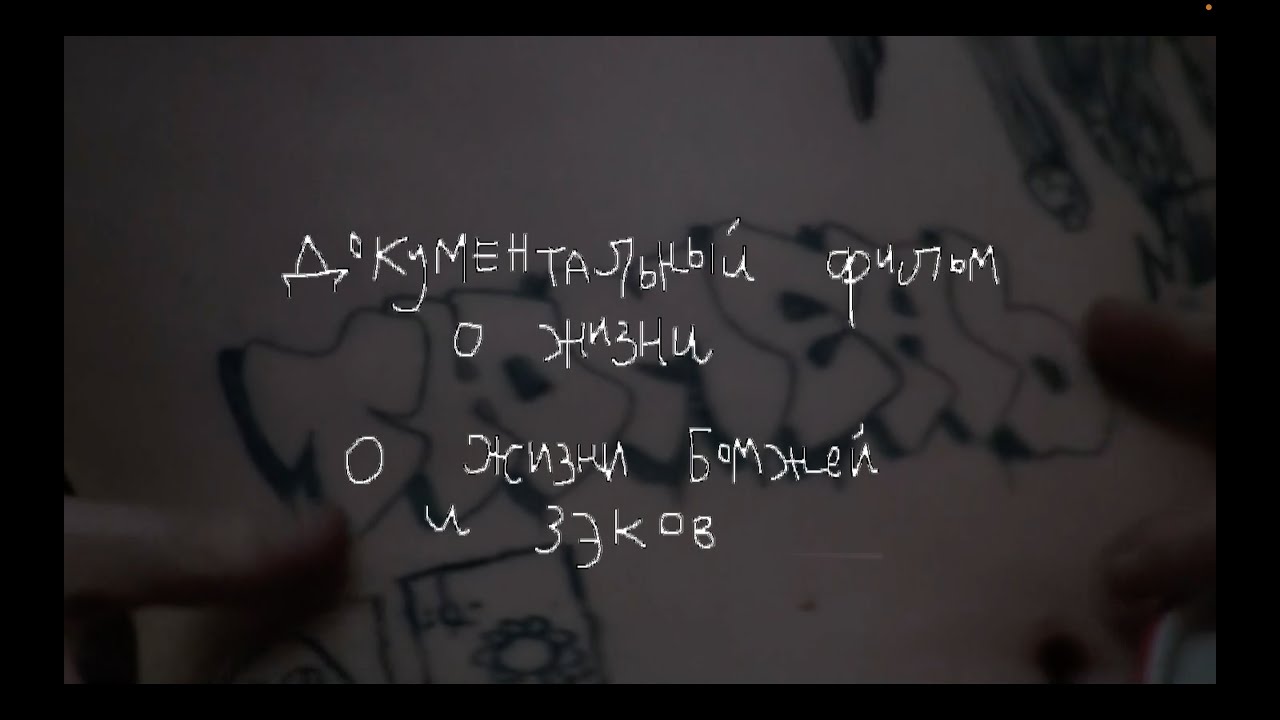 Документальный фильм
о жизни
О жизни Бомжей
и зэков